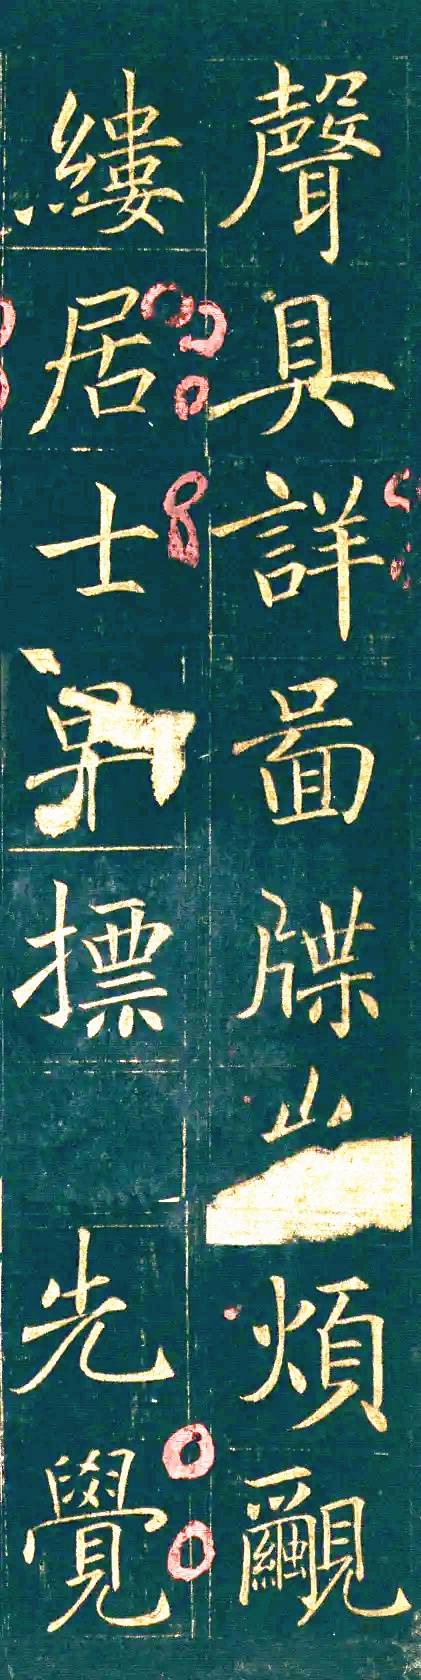 聲具詳啚牒煩覼
縷居士摽先覺